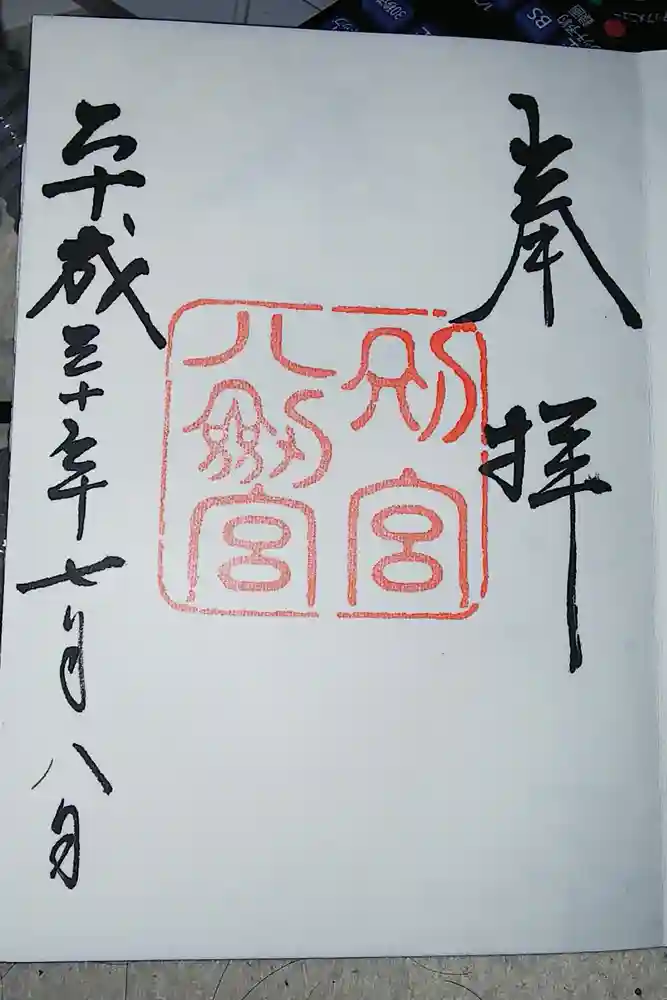 BS
奉拝
別宮
八剣宮
平成三十年七月八日